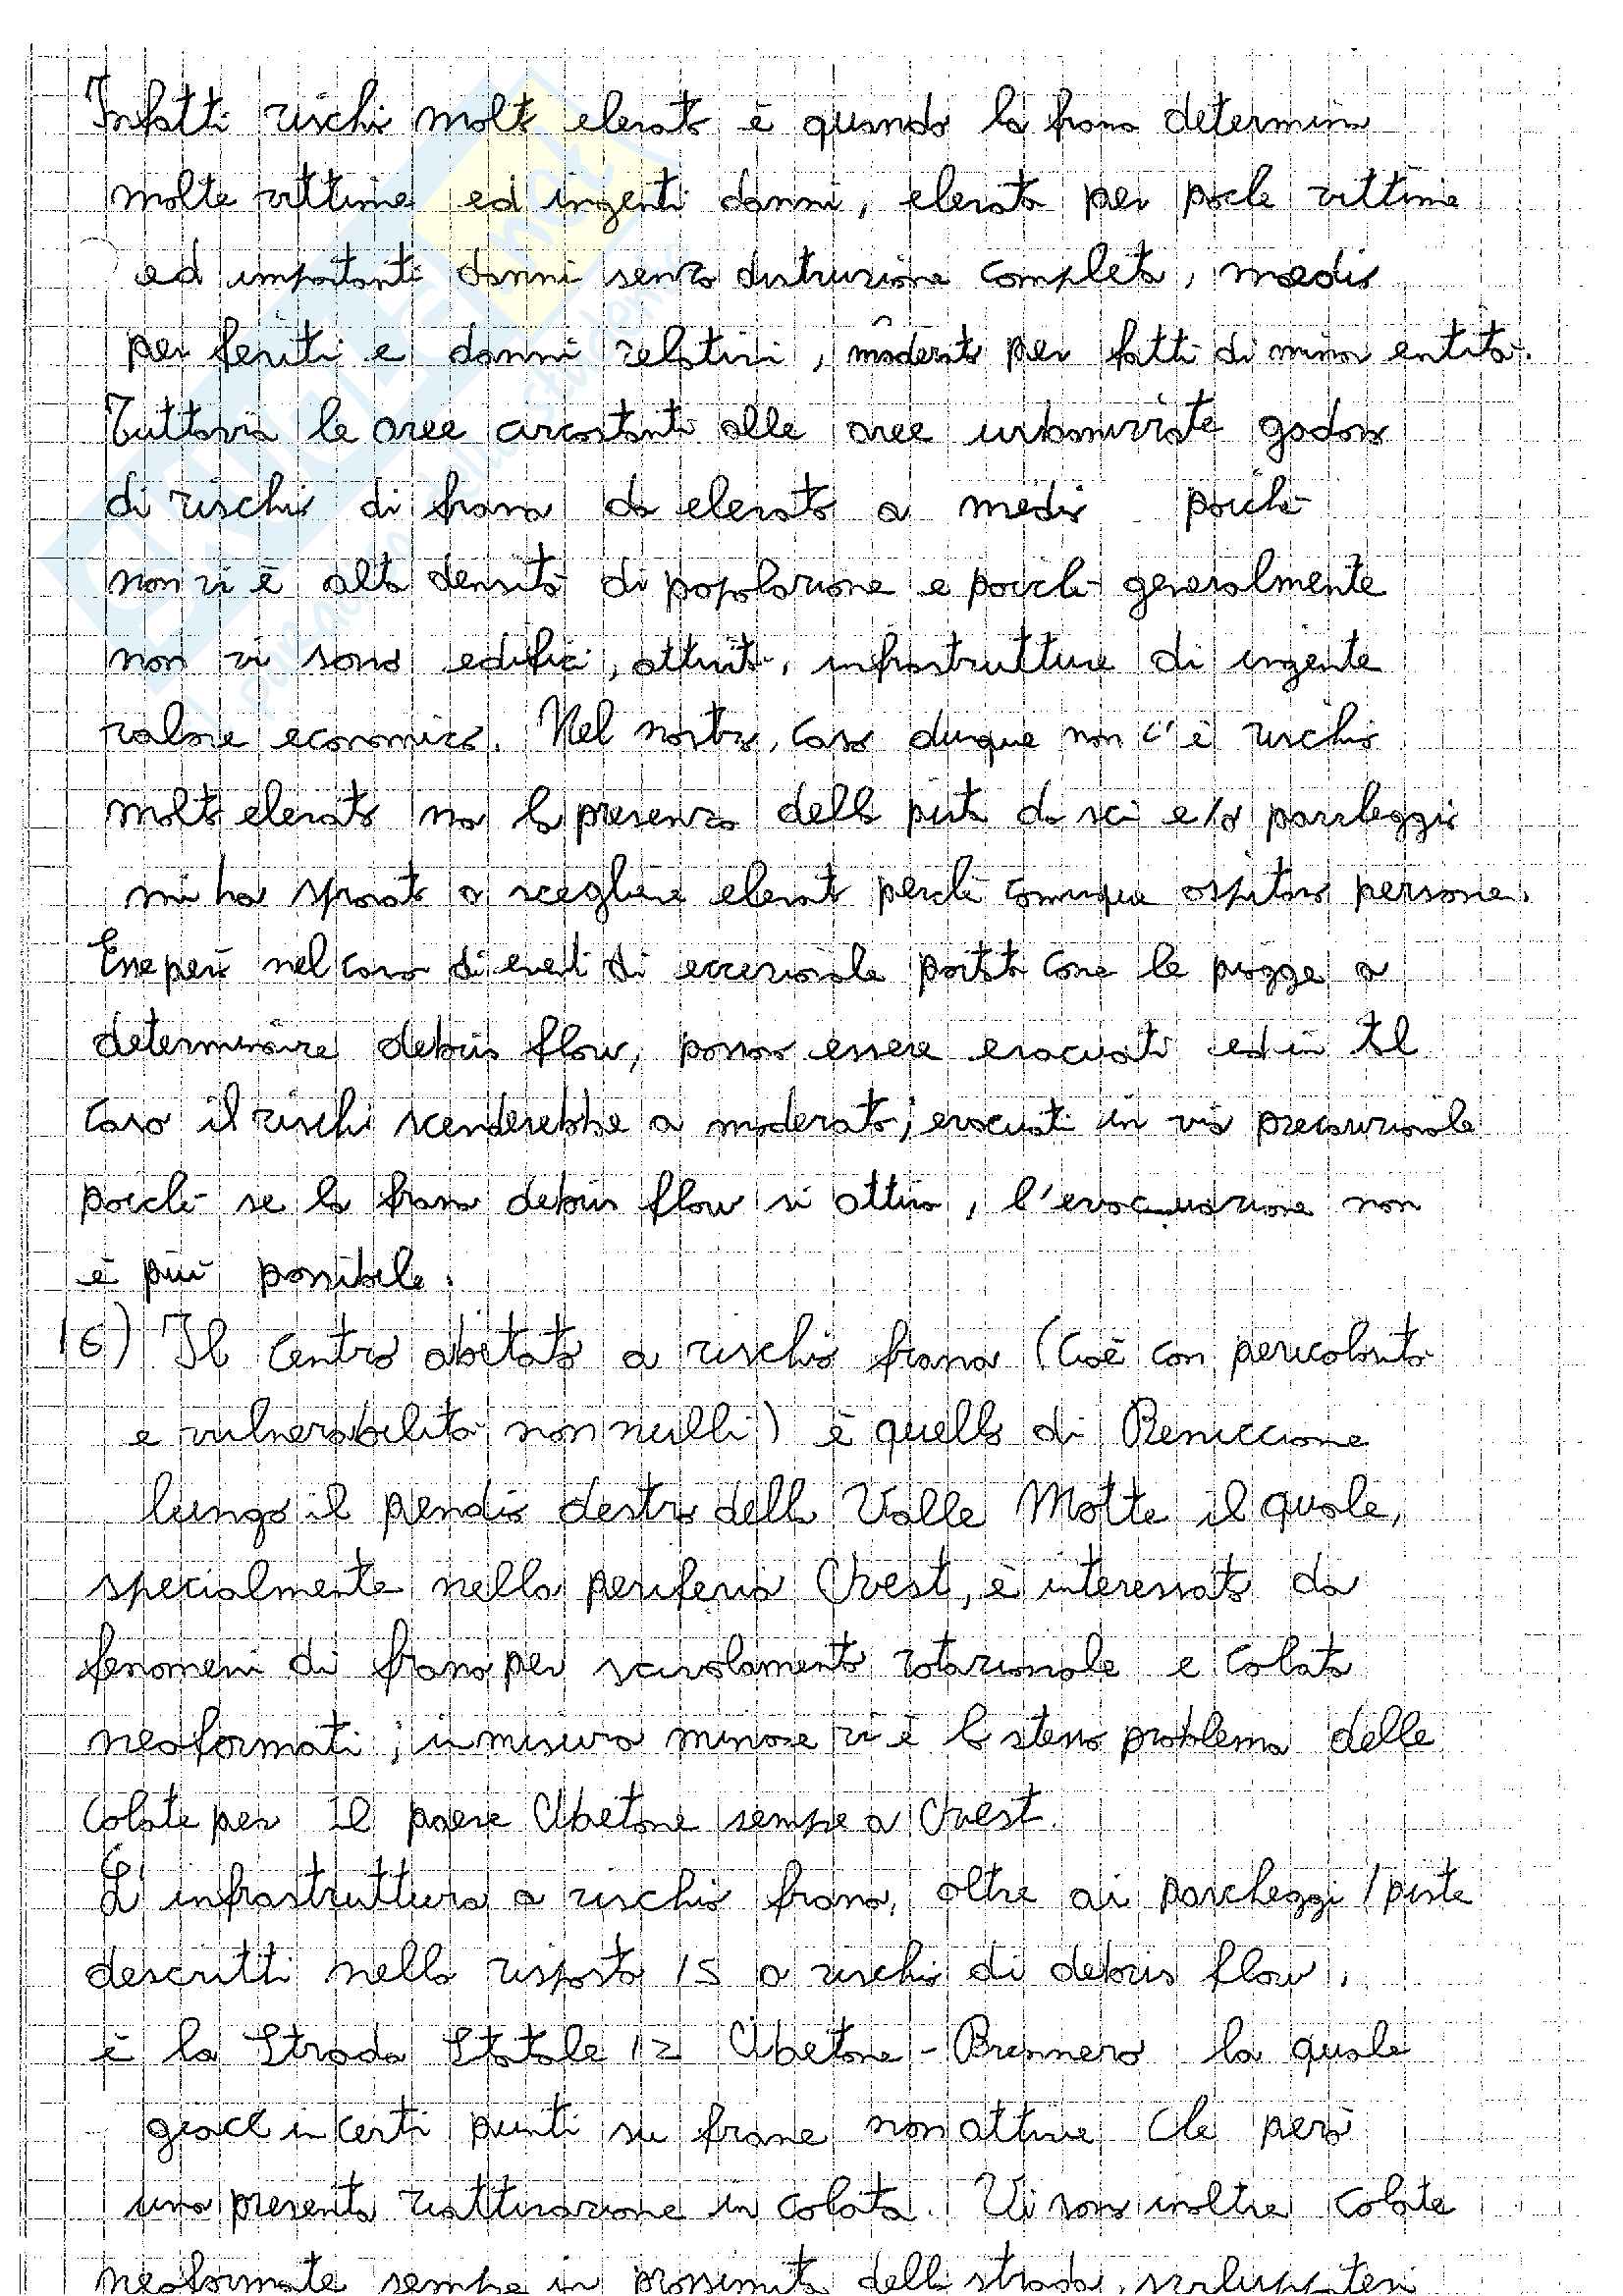 Infatti rischio molto elevato è quando la frana determina
molte vittime ed ingenti danni, elevato per poche vittime
ed importanti danni senza distruzione completa, medio
per feriti e danni relativi, moderato per fatti di minor entità.
Tuttavia le aree circostanti alle aree urbanizzate godono
di rischio di frana da elevato a medio poichè
non vi è alta densità di popolazione e poichè generalmente
non vi sono edifici, attività, infrastrutture di ingente
valore economico. Nel nostro caso dunque non c'è rischio
molto elevato ma la presenza della pista da sci e/o parcheggio
mi ha spronato a scegliere elevato perchè comunque ospitano persone.
Esse però nel caso di eventi di eccezionale portata come le piogge a
determinare debris flow, possono essere evacuati ed in tal
caso il rischio scenderebbe a moderato; evacuati in via precauzionale
poichè se la frana debris flow si attiva, l'evacuazione non
è più possibile.
16) Il centro abitato a rischio frana (Cioè con pericolosità
e vulnerabilità non nulli) è quello di Reniccione
lungo il pendio destro della Valle Motte il quale,
specialmente nella periferia Ovest, è interessato da
fenomeni di frana per scivolamento rotazionale e colata
neoformati; in misura minore vi è lo stesso problema delle
colate per il paese Abetone sempre a Ovest.
L'infrastruttura a rischio frana, oltre ai parcheggi/piste
descritti nella risposta 15 a rischio di debris flow,
è la Strada Statale 12 Abetone-Brennero la quale
giace in certi punti su frane non attive che però
una presenta riattivazione in colata. Vi sono inoltre colate
neoformate sempre in prossimità della strada, sviluppatesi